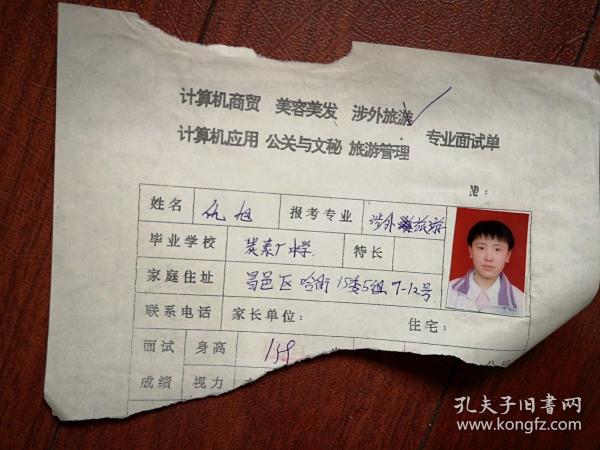 计算机商贸 美容美发 涉外旅游
计算机应用 公关与文秘 旅游管理 专业面试单
№:
姓名 仇旭 报考专业 涉外旅游
毕业学校 炭素厂中学 特长
家庭住址 昌邑区哈街15委5组7-12号
联系电话 家长单位: 住宅:
面试 身高 159
成绩 视力
孔夫子旧书网
www.kongfz.com